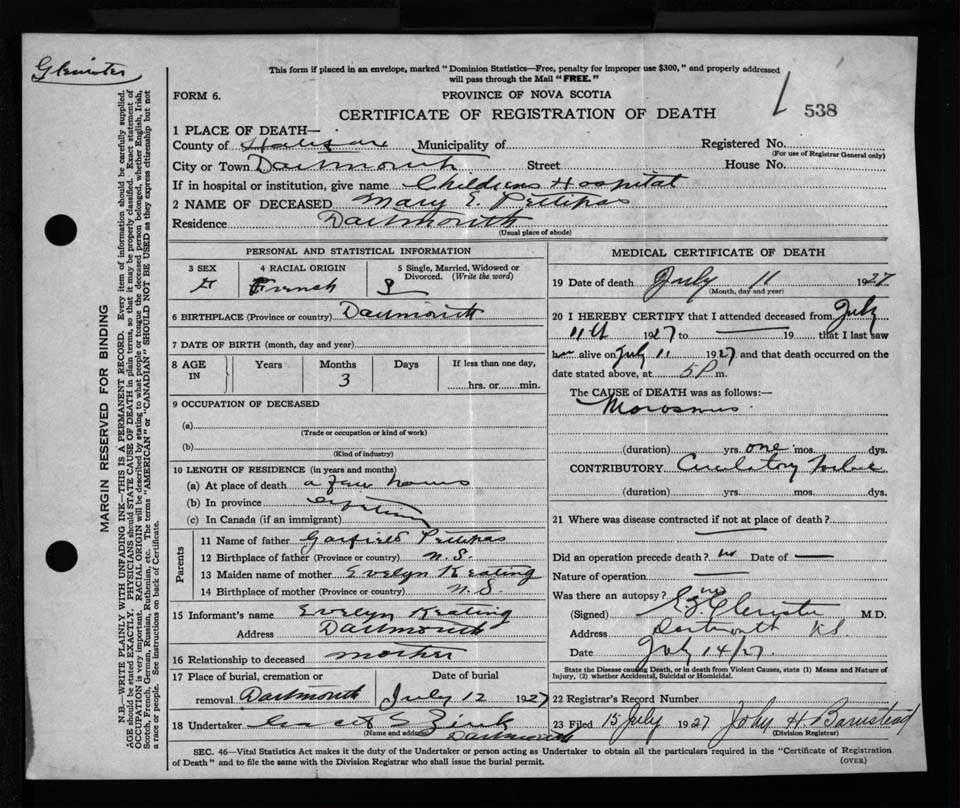 Glenister
This form if placed in an envelope, marked "Dominion Statistics—Free, penalty for improper use $300," and properly addressed
will pass through the Mail "FREE."
FORM 6.
PROVINCE OF NOVA SCOTIA
538
CERTIFICATE OF REGISTRATION OF DEATH
1 PLACE OF DEATH—
County of Halifax Municipality of Registered No.
(For use of Registrar General only)
City or Town Dartmouth Street House No.
If in hospital or institution, give name Childrens Hospital
2 NAME OF DECEASED Mary E. Pettipas
Residence Dartmouth
(Usual place of abode)
PERSONAL AND STATISTICAL INFORMATION
3 SEX 4 RACIAL ORIGIN 5 Single, Married, Widowed or
Divorced. (Write the word)
F French S
6 BIRTHPLACE (Province or country) Dartmouth
7 DATE OF BIRTH (month, day and year)
8 AGE IN Years Months Days If less than one day,
3 hrs. or min.
9 OCCUPATION OF DECEASED
(a)
(Trade or occupation or kind of work)
(b)
(Kind of industry)
10 LENGTH OF RESIDENCE (in years and months)
(a) At place of death a few hours
(b) In province
(c) In Canada (if an immigrant)
Parents
11 Name of father Garfield Pettipas
12 Birthplace of father (Province or country) N.S.
13 Maiden name of mother Evelyn Keating
14 Birthplace of mother (Province or country) N.S.
15 Informant's name Evelyn Keating
Address Dartmouth
16 Relationship to deceased mother
17 Place of burial, cremation or Date of burial
removal Dartmouth July 12 1927
18 Undertaker Zink
(Name and address) Dartmouth
MEDICAL CERTIFICATE OF DEATH
19 Date of death July 11 1927
(Month, day and year)
20 I HEREBY CERTIFY that I attended deceased from July
11th 1927 to 19 that I last saw
her alive on July 11 1927 and that death occurred on the
date stated above, at 5 P m.
The CAUSE OF DEATH was as follows:—
Marasmus
(duration) yrs. one mos. dys.
CONTRIBUTORY Circulatory failure
(duration) yrs. mos. dys.
21 Where was disease contracted if not at place of death?
Did an operation precede death? no Date of —
Nature of operation —
Was there an autopsy? no
(Signed) Glenister M.D.
Address Dartmouth N.S.
Date July 14/27.
State the Disease causing Death, or in death from Violent Causes, state (1) Means and Nature of
Injury, (2) whether Accidental, Suicidal or Homicidal.
22 Registrar's Record Number
23 Filed 15 July 1927 John H Barnstead
(Division Registrar)
SEC. 46—Vital Statistics Act makes it the duty of the Undertaker or person acting as Undertaker to obtain all the particulars required in the "Certificate of Registration
of Death" and to file the same with the Division Registrar who shall issue the burial permit.
(OVER)
MARGIN RESERVED FOR BINDING
N.B.—WRITE PLAINLY WITH UNFADING INK—THIS IS A PERMANENT RECORD. Every item of information should be carefully supplied.
AGE should be stated EXACTLY. PHYSICIANS should STATE CAUSE OF DEATH in plain terms, so that it may be properly classified. Exact statement of
OCCUPATION is very important. RACIAL ORIGIN will be described by stating to what people or tongue the deceased person belonged, whether English, Irish,
Scotch, French, German, Russian, Ruthenian, etc. The terms "AMERICAN" or "CANADIAN" SHOULD NOT BE USED as they express citizenship but not
a race or people. See instructions on back of Certificate.